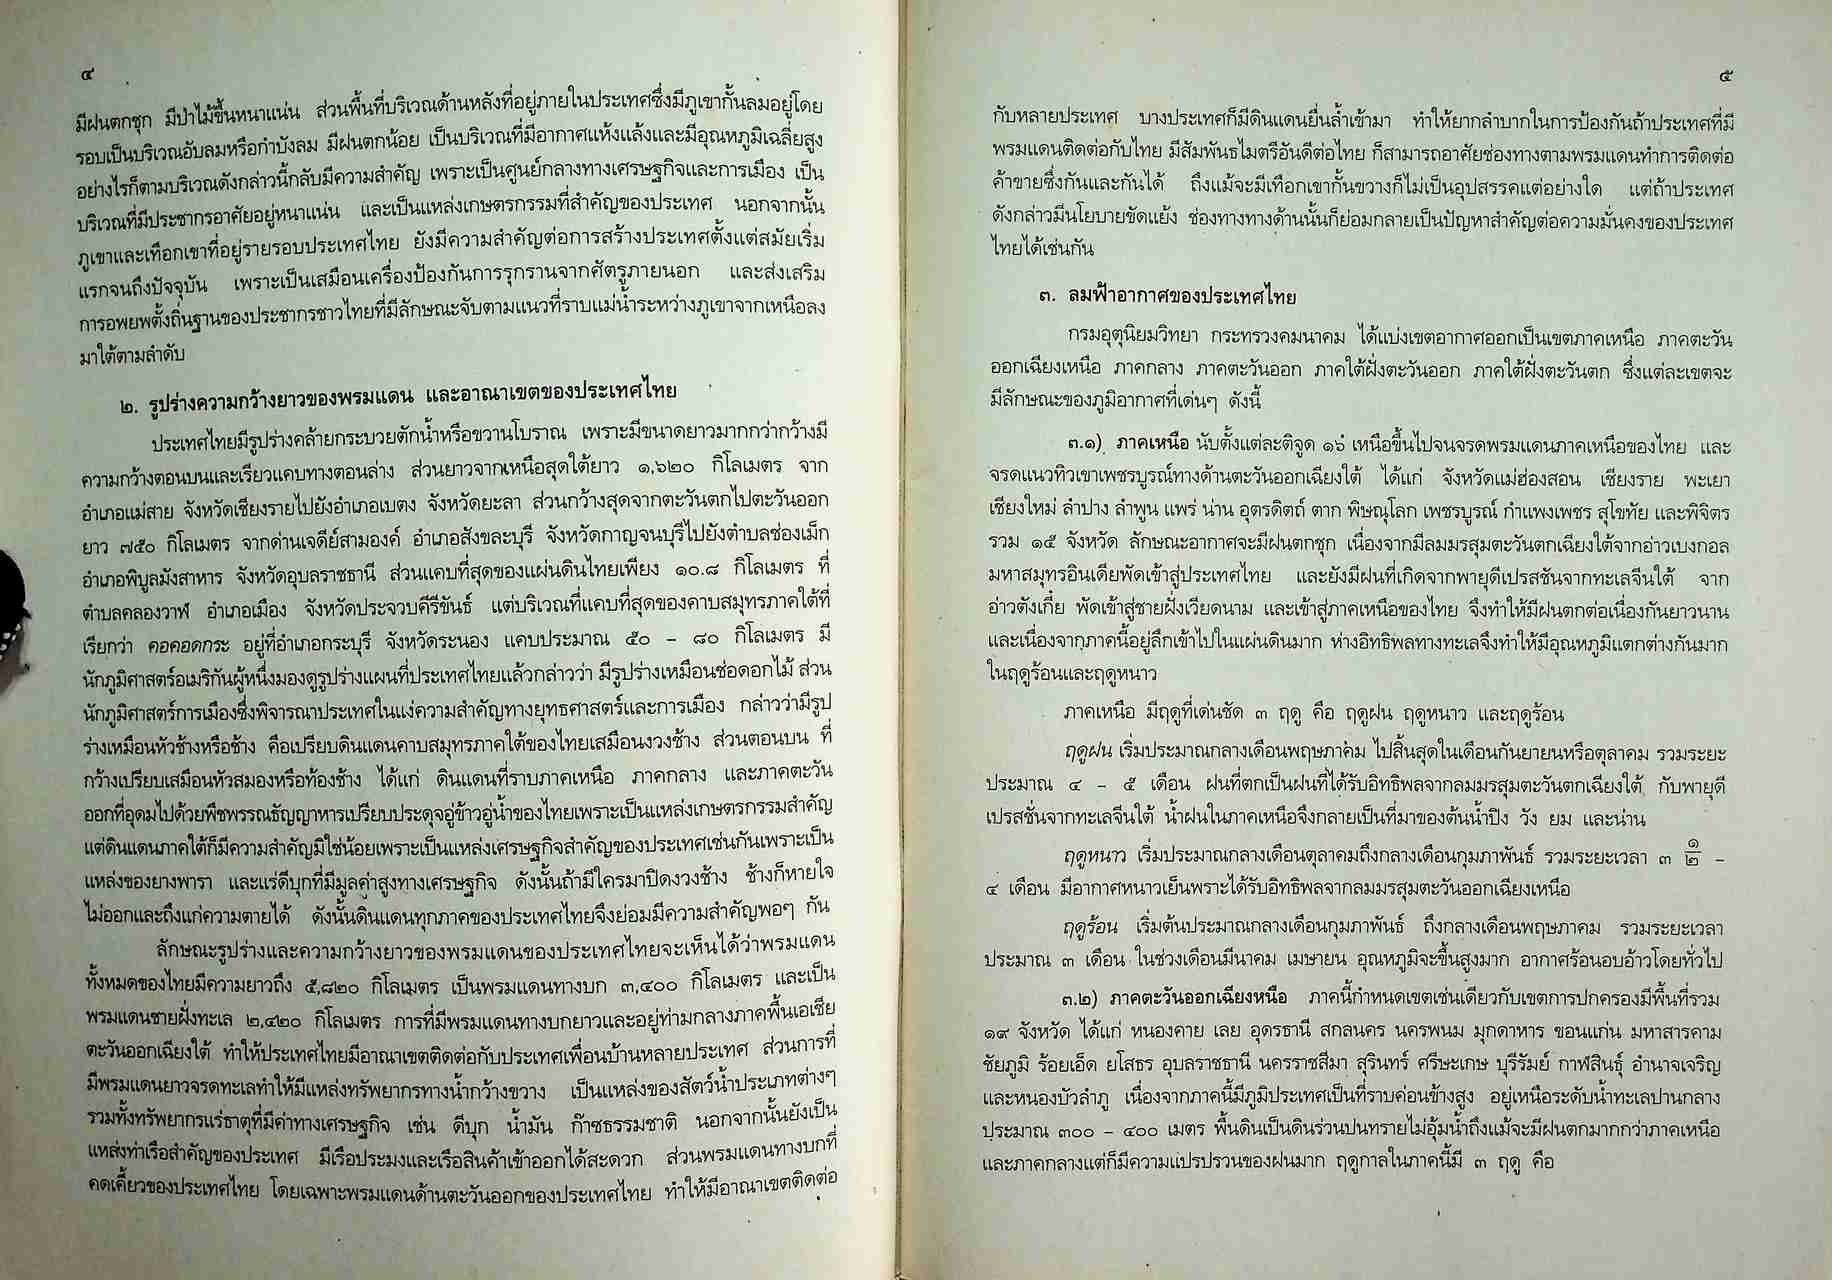 ๔
มีฝนตกชุก มีป่าไม้ขึ้นหนาแน่น ส่วนพื้นที่บริเวณด้านหลังที่อยู่ภายในประเทศซึ่งมีภูเขากั้นลมอยู่โดย
รอบเป็นบริเวณอับลมหรือกำบังลม มีฝนตกน้อย เป็นบริเวณที่มีอากาศแห้งแล้งและมีอุณหภูมิเฉลี่ยสูง
อย่างไรก็ตามบริเวณดังกล่าวนี้กลับมีความสำคัญ เพราะเป็นศูนย์กลางทางเศรษฐกิจและการเมือง เป็น
บริเวณที่มีประชากรอาศัยอยู่หนาแน่น และเป็นแหล่งเกษตรกรรมที่สำคัญของประเทศ นอกจากนั้น
ภูเขาและเทือกเขาที่อยู่รายรอบประเทศไทย ยังมีความสำคัญต่อการสร้างประเทศตั้งแต่สมัยเริ่ม
แรกจนถึงปัจจุบัน เพราะเป็นเสมือนเครื่องป้องกันการรุกรานจากศัตรูภายนอก และส่งเสริม
การอพยพตั้งถิ่นฐานของประชากรชาวไทยที่มีลักษณะจับตามแนวที่ราบแม่น้ำระหว่างภูเขาจากเหนือลง
มาใต้ตามลำดับ
๒. รูปร่างความกว้างยาวของพรมแดน และอาณาเขตของประเทศไทย
ประเทศไทยมีรูปร่างคล้ายกระบวยตักน้ำหรือขวานโบราณ เพราะมีขนาดยาวมากกว่ากว้างมี
ความกว้างตอนบนและเรียวแคบทางตอนล่าง ส่วนยาวจากเหนือสุดใต้ยาว ๑,๖๒๐ กิโลเมตร จาก
อำเภอแม่สาย จังหวัดเชียงรายไปยังอำเภอเบตง จังหวัดยะลา ส่วนกว้างสุดจากตะวันตกไปตะวันออก
ยาว ๗๕๐ กิโลเมตร จากด่านเจดีย์สามองค์ อำเภอสังขละบุรี จังหวัดกาญจนบุรีไปยังตำบลช่องเม็ก
อำเภอพิบูลมังสาหาร จังหวัดอุบลราชธานี ส่วนแคบที่สุดของแผ่นดินไทยเพียง ๑๐.๘ กิโลเมตร ที่
ตำบลคลองวาฬ อำเภอเมือง จังหวัดประจวบคีรีขันธ์ แต่บริเวณที่แคบที่สุดของคาบสมุทรภาคใต้ที่
เรียกว่า คอคอดกระ อยู่ที่อำเภอกระบุรี จังหวัดระนอง แคบประมาณ ๕๐ – ๘๐ กิโลเมตร มี
นักภูมิศาสตร์อเมริกันผู้หนึ่งมองดูรูปร่างแผนที่ประเทศไทยแล้วกล่าวว่า มีรูปร่างเหมือนช่อดอกไม้ ส่วน
นักภูมิศาสตร์การเมืองซึ่งพิจารณาประเทศในแง่ความสำคัญทางยุทธศาสตร์และการเมือง กล่าวว่ามีรูป
ร่างเหมือนหัวช้างหรือช้าง คือเปรียบดินแดนคาบสมุทรภาคใต้ของไทยเสมือนงวงช้าง ส่วนตอนบน ที่
กว้างเปรียบเสมือนหัวสมองหรือท้องช้าง ได้แก่ ดินแดนที่ราบภาคเหนือ ภาคกลาง และภาคตะวัน
ออกที่อุดมไปด้วยพืชพรรณธัญญาหารเปรียบประดุจอู่ข้าวอู่น้ำของไทยเพราะเป็นแหล่งเกษตรกรรมสำคัญ
แต่ดินแดนภาคใต้ก็มีความสำคัญมิใช่น้อยเพราะเป็นแหล่งเศรษฐกิจสำคัญของประเทศเช่นกันเพราะเป็น
แหล่งของยางพารา และแร่ดีบุกที่มีมูลค่าสูงทางเศรษฐกิจ ดังนั้นถ้ามีใครมาปิดงวงช้าง ช้างก็หายใจ
ไม่ออกและถึงแก่ความตายได้ ดังนั้นดินแดนทุกภาคของประเทศไทยจึงย่อมมีความสำคัญพอๆ กัน
ลักษณะรูปร่างและความกว้างยาวของพรมแดนของประเทศไทยจะเห็นได้ว่าพรมแดน
ทั้งหมดของไทยมีความยาวถึง ๕,๘๒๐ กิโลเมตร เป็นพรมแดนทางบก ๓,๔๐๐ กิโลเมตร และเป็น
พรมแดนชายฝั่งทะเล ๒,๔๒๐ กิโลเมตร การที่มีพรมแดนทางบกยาวและอยู่ท่ามกลางภาคพื้นเอเชีย
ตะวันออกเฉียงใต้ ทำให้ประเทศไทยมีอาณาเขตติดต่อกับประเทศเพื่อนบ้านหลายประเทศ ส่วนการที่
มีพรมแดนยาวจรดทะเลทำให้มีแหล่งทรัพยากรทางน้ำกว้างขวาง เป็นแหล่งของสัตว์น้ำประเภทต่างๆ
รวมทั้งทรัพยากรแร่ธาตุที่มีค่าทางเศรษฐกิจ เช่น ดีบุก น้ำมัน ก๊าซธรรมชาติ นอกจากนั้นยังเป็น
แหล่งท่าเรือสำคัญของประเทศ มีเรือประมงและเรือสินค้าเข้าออกได้สะดวก ส่วนพรมแดนทางบกที่
คดเคี้ยวของประเทศไทย โดยเฉพาะพรมแดนด้านตะวันออกของประเทศไทย ทำให้มีอาณาเขตติดต่อ
๕
กับหลายประเทศ บางประเทศก็มีดินแดนยื่นล้ำเข้ามา ทำให้ยากลำบากในการป้องกันถ้าประเทศที่มี
พรมแดนติดต่อกับไทย มีสัมพันธไมตรีอันดีต่อไทย ก็สามารถอาศัยช่องทางตามพรมแดนทำการติดต่อ
ค้าขายซึ่งกันและกันได้ ถึงแม้จะมีเทือกเขากั้นขวางก็ไม่เป็นอุปสรรคแต่อย่างใด แต่ถ้าประเทศ
ดังกล่าวมีนโยบายขัดแย้ง ช่องทางทางด้านนั้นก็ย่อมกลายเป็นปัญหาสำคัญต่อความมั่นคงของประเทศ
ไทยได้เช่นกัน
๓. ลมฟ้าอากาศของประเทศไทย
กรมอุตุนิยมวิทยา กระทรวงคมนาคม ได้แบ่งเขตอากาศออกเป็นเขตภาคเหนือ ภาคตะวัน
ออกเฉียงเหนือ ภาคกลาง ภาคตะวันออก ภาคใต้ฝั่งตะวันออก ภาคใต้ฝั่งตะวันตก ซึ่งแต่ละเขตจะ
มีลักษณะของภูมิอากาศที่เด่นๆ ดังนี้
๓.๑) ภาคเหนือ นับตั้งแต่ละติจูด ๑๖ เหนือขึ้นไปจนจรดพรมแดนภาคเหนือของไทย และ
จรดแนวทิวเขาเพชรบูรณ์ทางด้านตะวันออกเฉียงใต้ ได้แก่ จังหวัดแม่ฮ่องสอน เชียงราย พะเยา
เชียงใหม่ ลำปาง ลำพูน แพร่ น่าน อุตรดิตถ์ ตาก พิษณุโลก เพชรบูรณ์ กำแพงเพชร สุโขทัย และพิจิตร
รวม ๑๕ จังหวัด ลักษณะอากาศจะมีฝนตกชุก เนื่องจากมีลมมรสุมตะวันตกเฉียงใต้จากอ่าวเบงกอล
มหาสมุทรอินเดียพัดเข้าสู่ประเทศไทย และยังมีฝนที่เกิดจากพายุดีเปรสชันจากทะเลจีนใต้ จาก
อ่าวตังเกี๋ย พัดเข้าสู่ชายฝั่งเวียดนาม และเข้าสู่ภาคเหนือของไทย จึงทำให้มีฝนตกต่อเนื่องกันยาวนาน
และเนื่องจากภาคนี้อยู่ลึกเข้าไปในแผ่นดินมาก ห่างอิทธิพลทางทะเลจึงทำให้มีอุณหภูมิแตกต่างกันมาก
ในฤดูร้อนและฤดูหนาว
ภาคเหนือ มีฤดูที่เด่นชัด ๓ ฤดู คือ ฤดูฝน ฤดูหนาว และฤดูร้อน
ฤดูฝน เริ่มประมาณกลางเดือนพฤษภาคม ไปสิ้นสุดในเดือนกันยายนหรือตุลาคม รวมระยะ
ประมาณ ๔ – ๕ เดือน ฝนที่ตกเป็นฝนที่ได้รับอิทธิพลจากลมมรสุมตะวันตกเฉียงใต้ กับพายุดี
เปรสชั่นจากทะเลจีนใต้ น้ำฝนในภาคเหนือจึงกลายเป็นที่มาของต้นน้ำปิง วัง ยม และน่าน
ฤดูหนาว เริ่มประมาณกลางเดือนตุลาคมถึงกลางเดือนกุมภาพันธ์ รวมระยะเวลา ๓ ๑/๒ –
๔ เดือน มีอากาศหนาวเย็นพราะได้รับอิทธิพลจากลมมรสุมตะวันออกเฉียงเหนือ
ฤดูร้อน เริ่มต้นประมาณกลางเดือนกุมภาพันธ์ ถึงกลางเดือนพฤษภาคม รวมระยะเวลา
ประมาณ ๓ เดือน ในช่วงเดือนมีนาคม เมษายน อุณหภูมิจะขึ้นสูงมาก อากาศร้อนอบอ้าวโดยทั่วไป
๓.๒) ภาคตะวันออกเฉียงหนือ ภาคนี้กำหนดเขตเช่นเดียวกับเขตการปกครองมีพื้นที่รวม
๑๙ จังหวัด ได้แก่ หนองคาย เลย อุดรธานี สกลนคร นครพนม มุกดาหาร ขอนแก่น มหาสารคาม
ชัยภูมิ ร้อยเอ็ด ยโสธร อุบลราชธานี นครราชสีมา สุรินทร์ ศรีษะเกษ บุรีรัมย์ กาฬสินธุ์ อำนาจเจริญ
และหนองบัวลำภู เนื่องจากภาคนี้มีภูมิประเทศเป็นที่ราบค่อนข้างสูง อยู่เหนือระดับน้ำทะเลปานกลาง
ประมาณ ๓๐๐ – ๔๐๐ เมตร พื้นดินเป็นดินร่วนปนทรายไม่อุ้มน้ำถึงแม้จะมีฝนตกมากกว่าภาคเหนือ
และภาคกลางแต่ก็มีความแปรปรวนของฝนมาก ฤดูกาลในภาคนี้มี ๓ ฤดู คือ